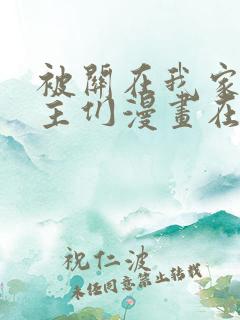 被關在我家
主们漫畫在
祝仁波
未任同意禁止转载